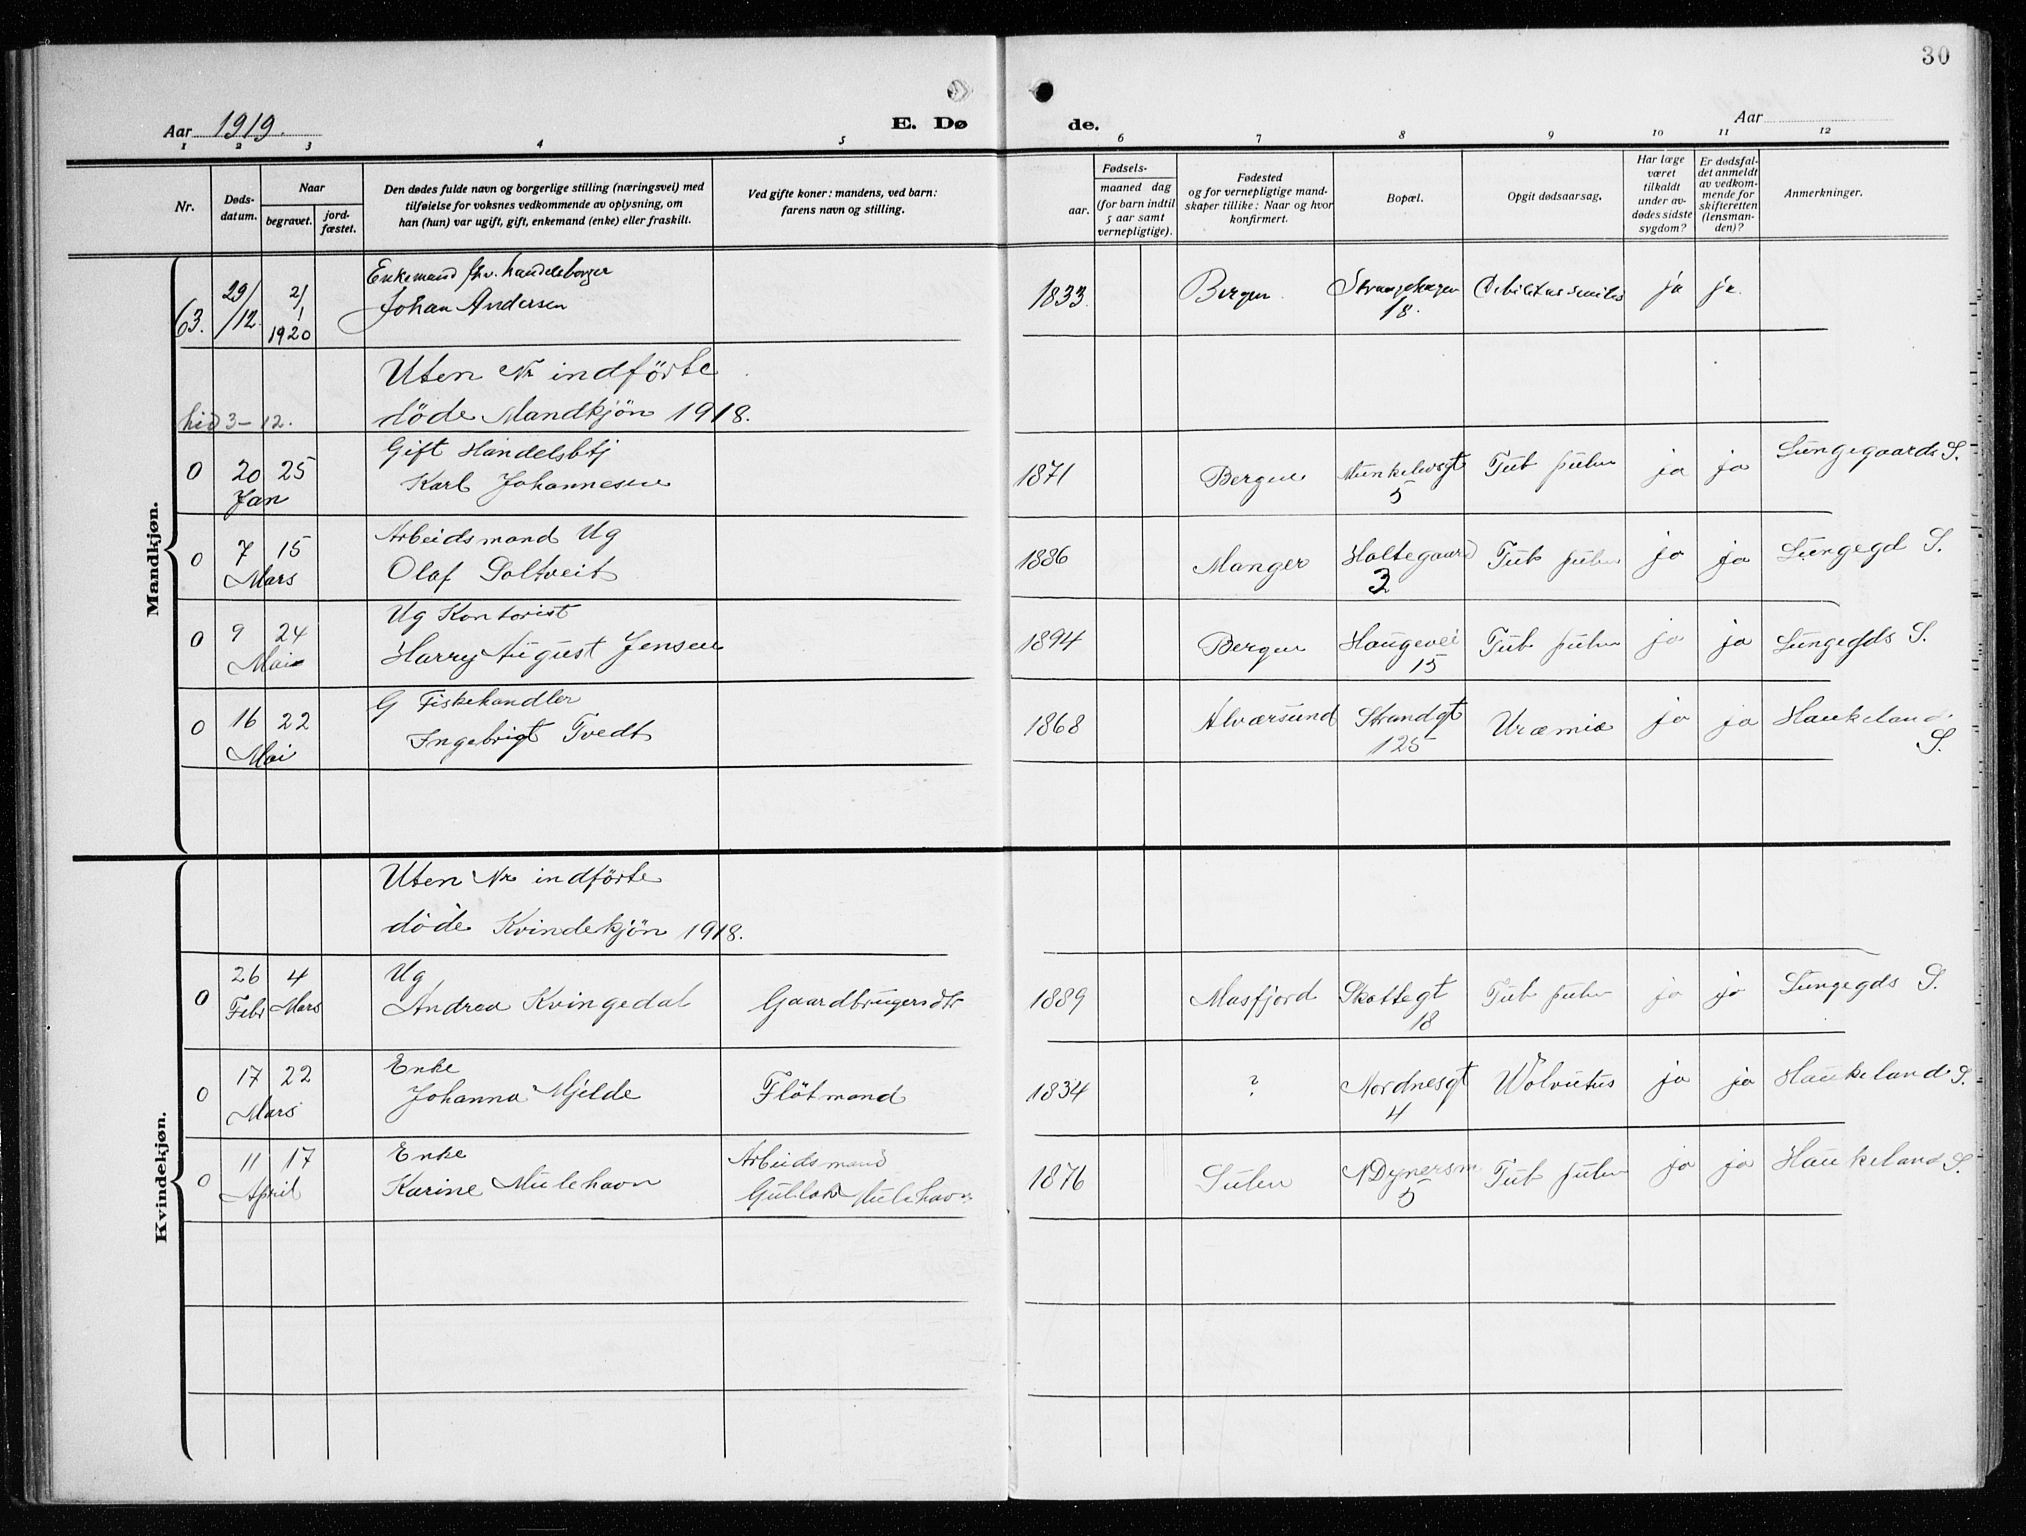 30
Aar 1919.
E. Dø
de.
Aar
1 2 3 4 5 6 7 8 9 10 11 12
Nr.
Døds-
datum.
Naar
begravet.
jord-
fæstet.
Den dødes fulde navn og borgerlige stilling (næringsvei) med
tilføielse for voksnes vedkommende av oplysning, om
han (hun) var ugift, gift, enkemand (enke) eller fraskilt.
Ved gifte koner: mandens, ved barn:
farens navn og stilling.
Fødsels-
aar.
maaned dag
(for barn indtil
5 aar samt
vernepligtige).
Fødested
og for vernepligtige mand-
skaper tillike: Naar og hvor
konfirmert.
Bopæl.
Opgit dødsaarsag.
Har læge
været
tilkaldt
under av-
dødes sidste
sygdom?
Er dødsfal-
det anmeldt
av vedkom-
mende for
skifteretten
(lensman-
den)?
Anmerkninger.
Mandkjøn.
63. 29/12. 2/1 1920
Enkemand fhv. handelsborger
Johan Andersen
1833. Bergen. Strangehagen 18. Debilitas senilis ja ja.
Uten Nr indførte
døde Mandkjön 1918.
hid 3-12.
0 20 25 Jan
Gift Handelsbtj
Karl Johannesen
1871 Bergen Munkelivsgt 5 Tub pulm ja ja Lungegaards S.
0 7 15 Mars
Arbeidsmand Ug
Olaf Soltveit
1886 Manger Holtegaard 3 Tub pulm ja ja Lungegd S.
0 9 24 Mai
Ug Kontorist
Harry August Jensen
1894 Bergen Haugevei 15 Tub pulm ja ja Lungegds S.
0 16 22 Mai
G Fiskehandler
Ingebrigt Tvedt
1868 Alværsund Strandgt 125 Uræmia ja ja Haukeland S.
Kvindekjøn.
Uten Nr indförte
döde Kvindekjön 1918.
0 26 Febr 4 Mars
Ug
Andrea Kvingedal
Gaardbrugersdtr
1889 Masfjord Skottegt 18 Tub pulm ja ja Lungegds S.
0 17 22 Mars
Enke
Johanna Mjelde
Flötmand
1834 ? Nordnesgt 4 Wolvulus ja ja Haukeland S.
0 11 17 April
Enke
Karine Mulehavn
Arbeidsmand
Gullak Mulehavn
1876 Sulen N Dynersm 5 Tub pulm ja ja Haukeland S.